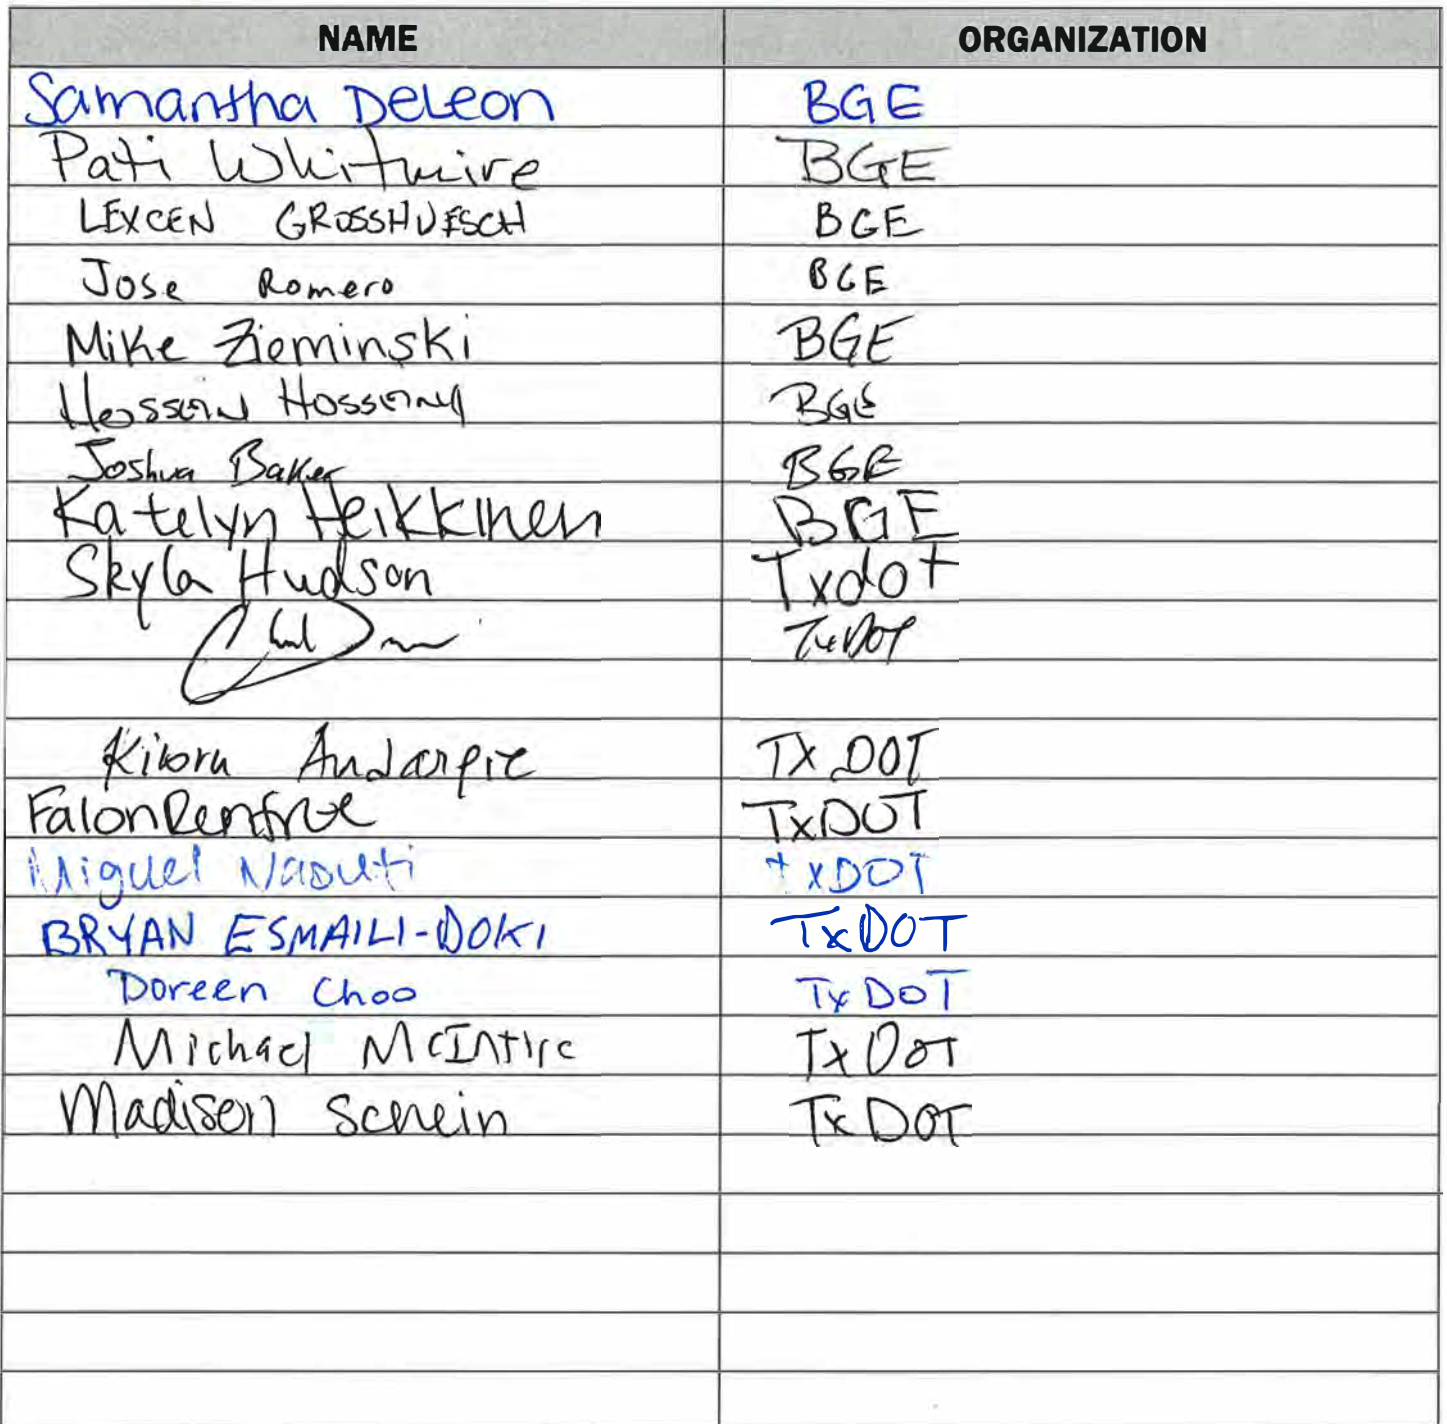 NAME ORGANIZATION
Samantha DeLeon BGE
Pati Whitmire BGE
LEXCEN GROSSHUESCH BGE
Jose Romero BGE
Mike Zieminski BGE
Hossein Hosseiny BGE
Joshua Baker BGE
Katelyn Heikkinen BGE
Skyla Hudson Txdot
TxDOT
TX DOT
Falon Renfroe TxDOT
Miguel txDOT
BRYAN ESMAILI-DOKI TxDOT
Doreen Choo TxDOT
Michael McIntire TxDOT
Madison Schein TxDOT